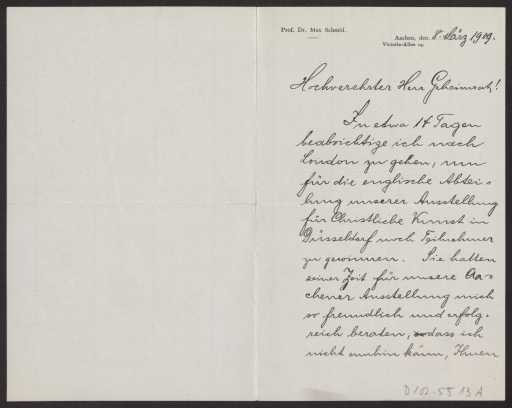 Prof. Dr. Max Schmid.
Aachen, den 8. März 1909.
Victoria-Allee
Hochverehrter Herr Geheimrat!
In etwa 14 Tagen
beabsichtige ich nach
London zu gehen, um
für die englische Abtei-
lung unserer Ausstellung
für Christliche Kunst in
Düsseldorf noch Teilnehmer
zu gewinnen. Sie hatten
seiner Zeit für unsere Aa-
chener Ausstellung mich
so freundlich und erfolg-
reich beraten, sodass ich
nicht umhin kann, Ihnen